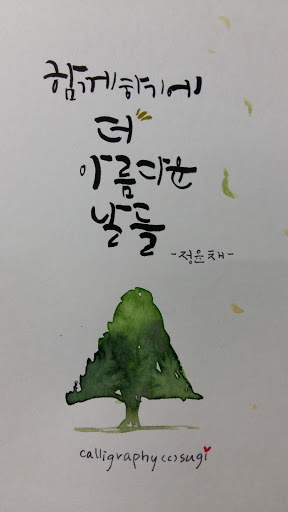 함께하기에
더
아름다운
날들
-정윤채-
calligraphy (c) sugi